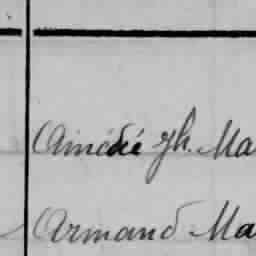 Amédé Jh. Ma
Armand Ma